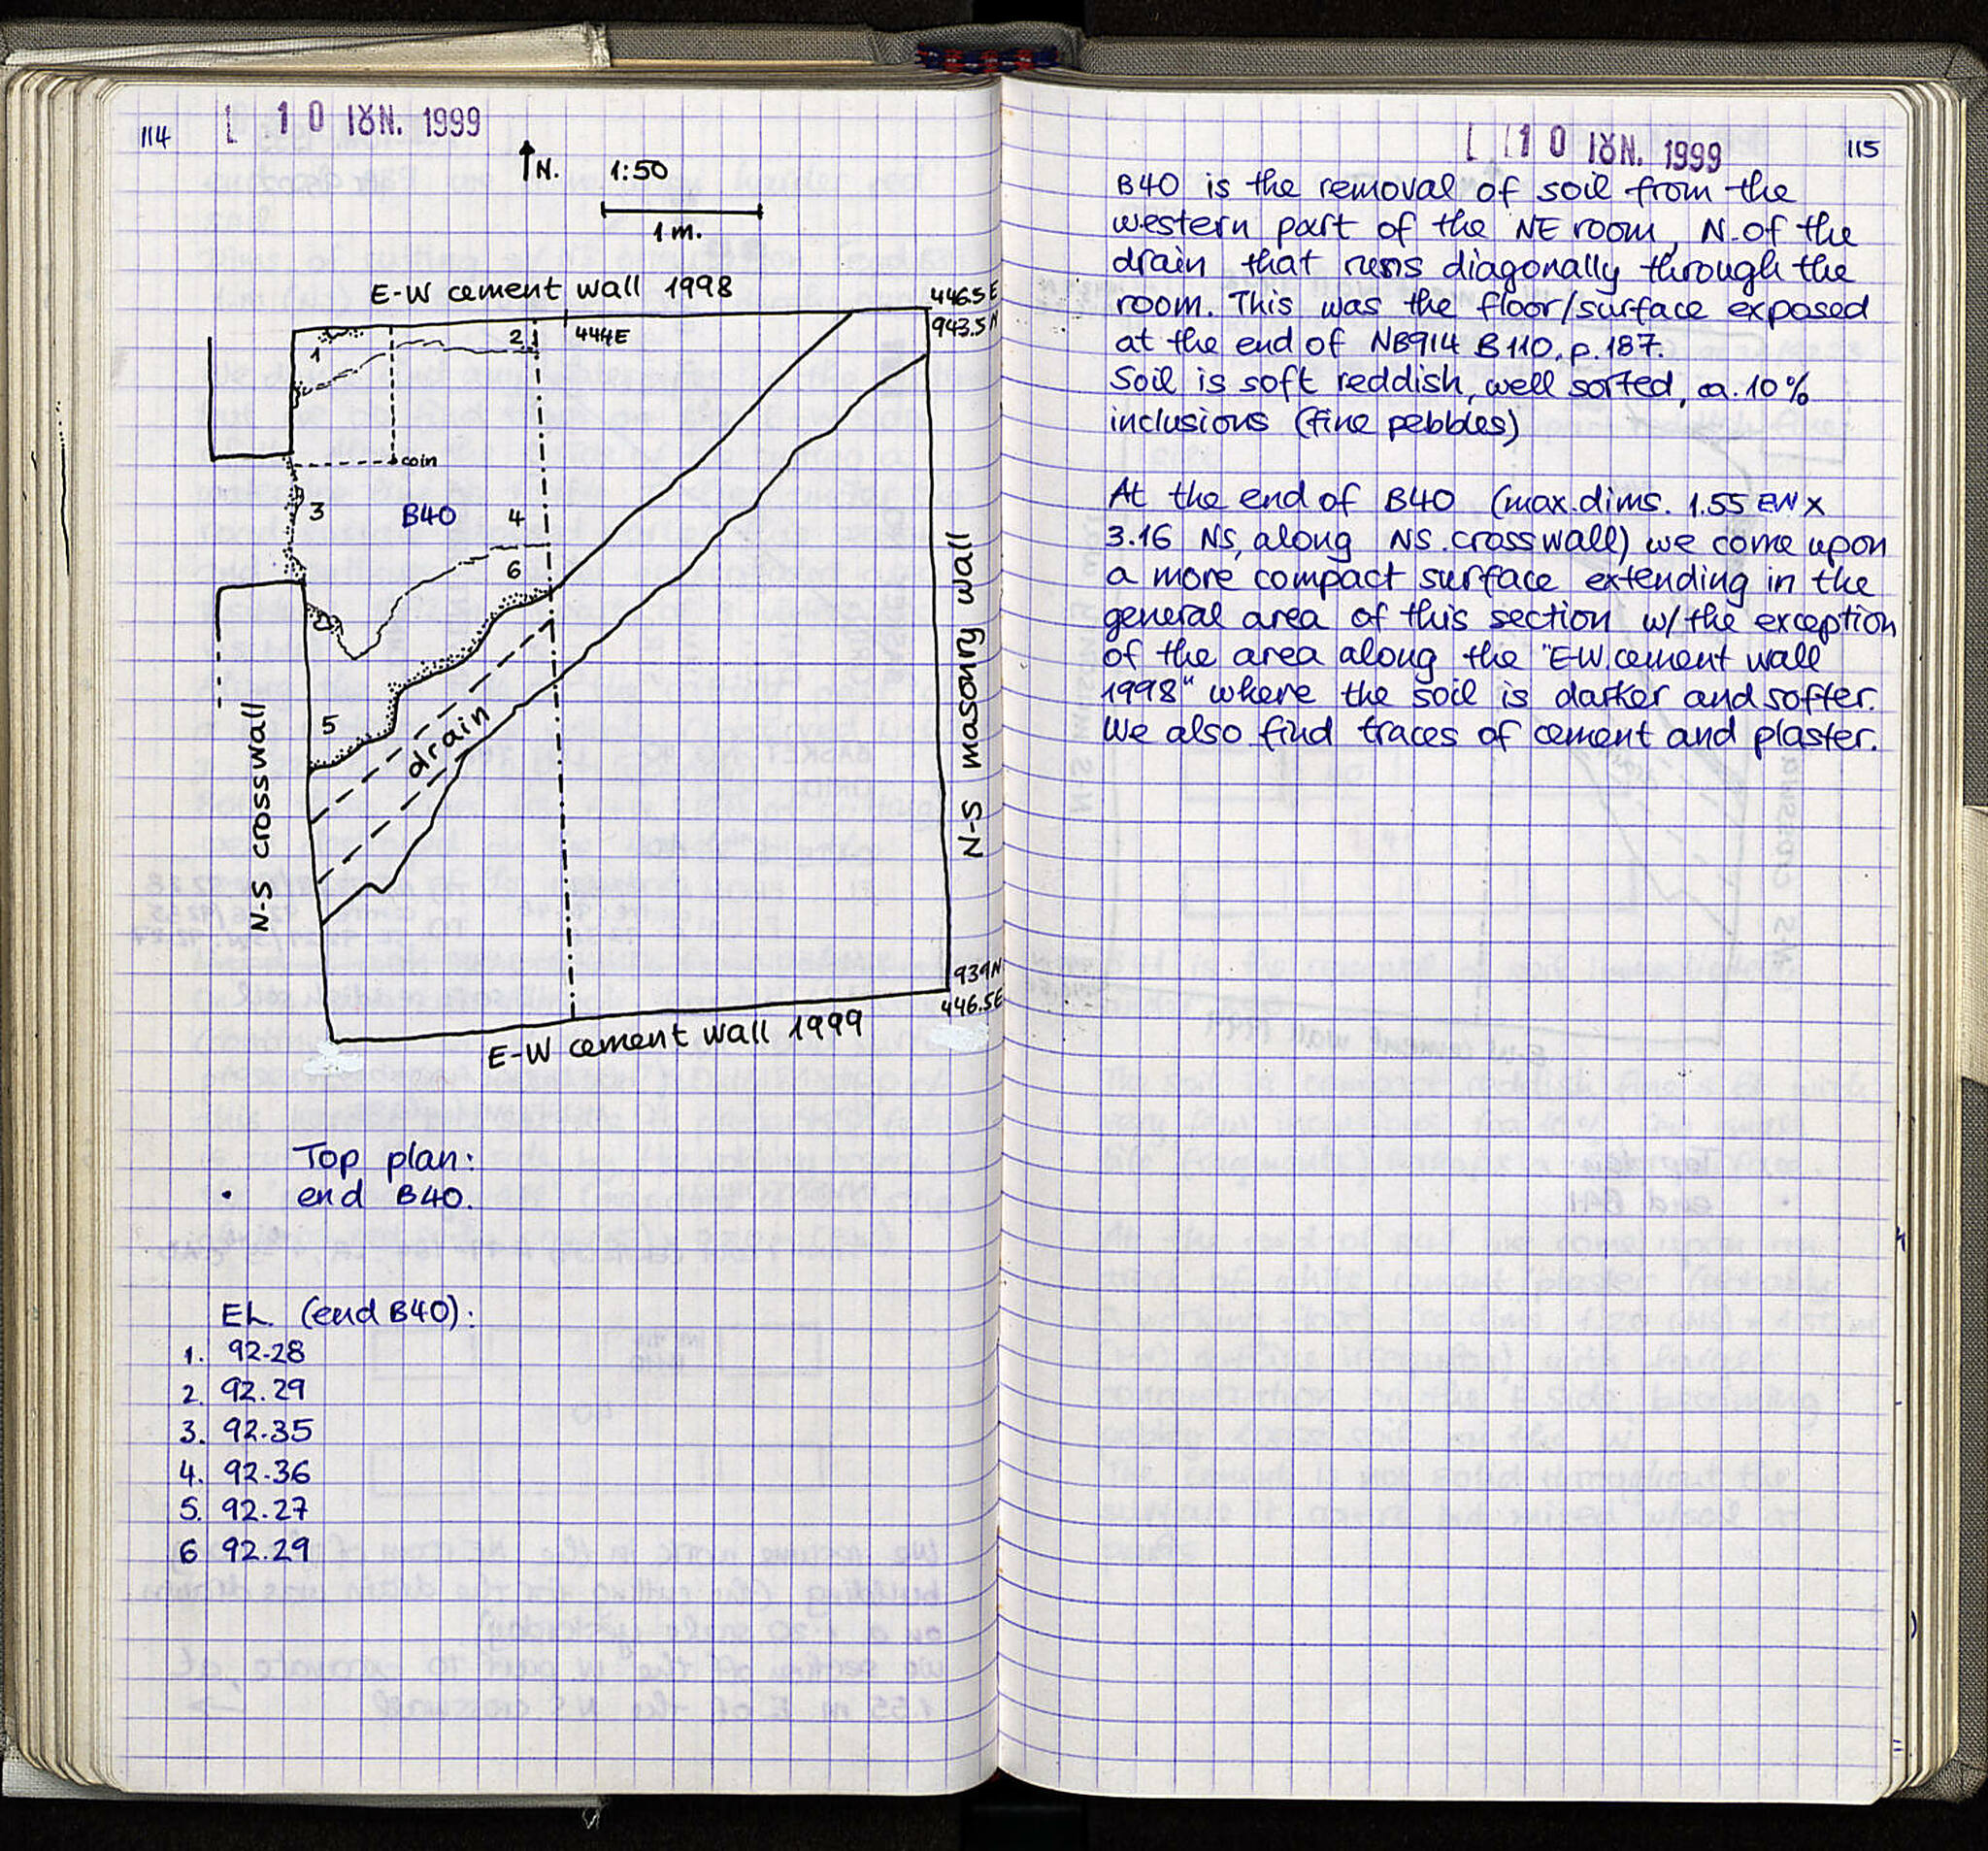 114
10 ΙΟΥΝ. 1999
N.
1:50
1 m.
E-W cement wall 1998
446.5 E
943.5 N
1
2
444E
coin
3
B40
4
6
5
drain
N-S crosswall
N-S masonry wall
939N
446.5E
E-W cement wall 1999
Top plan:
end B40.
EL. (end B40):
1. 92.28
2. 92.29
3. 92.35
4. 92.36
5. 92.27
6 92.29
10 ΙΟΥΝ. 1999
115
B40 is the removal of soil from the
western part of the NE room, N. of the
drain that runs diagonally through the
room. This was the floor/surface exposed
at the end of NB914 B110, p. 187.
Soil is soft reddish, well sorted, ca. 10%
inclusions (fine pebbles)
At the end of B40 (max. dims. 1.55 EW x
3.16 NS, along NS. crosswall) we come upon
a more compact surface extending in the
general area of this section w/the exception
of the area along the "EW cement wall
1998" where the soil is darker and softer.
We also find traces of cement and plaster.